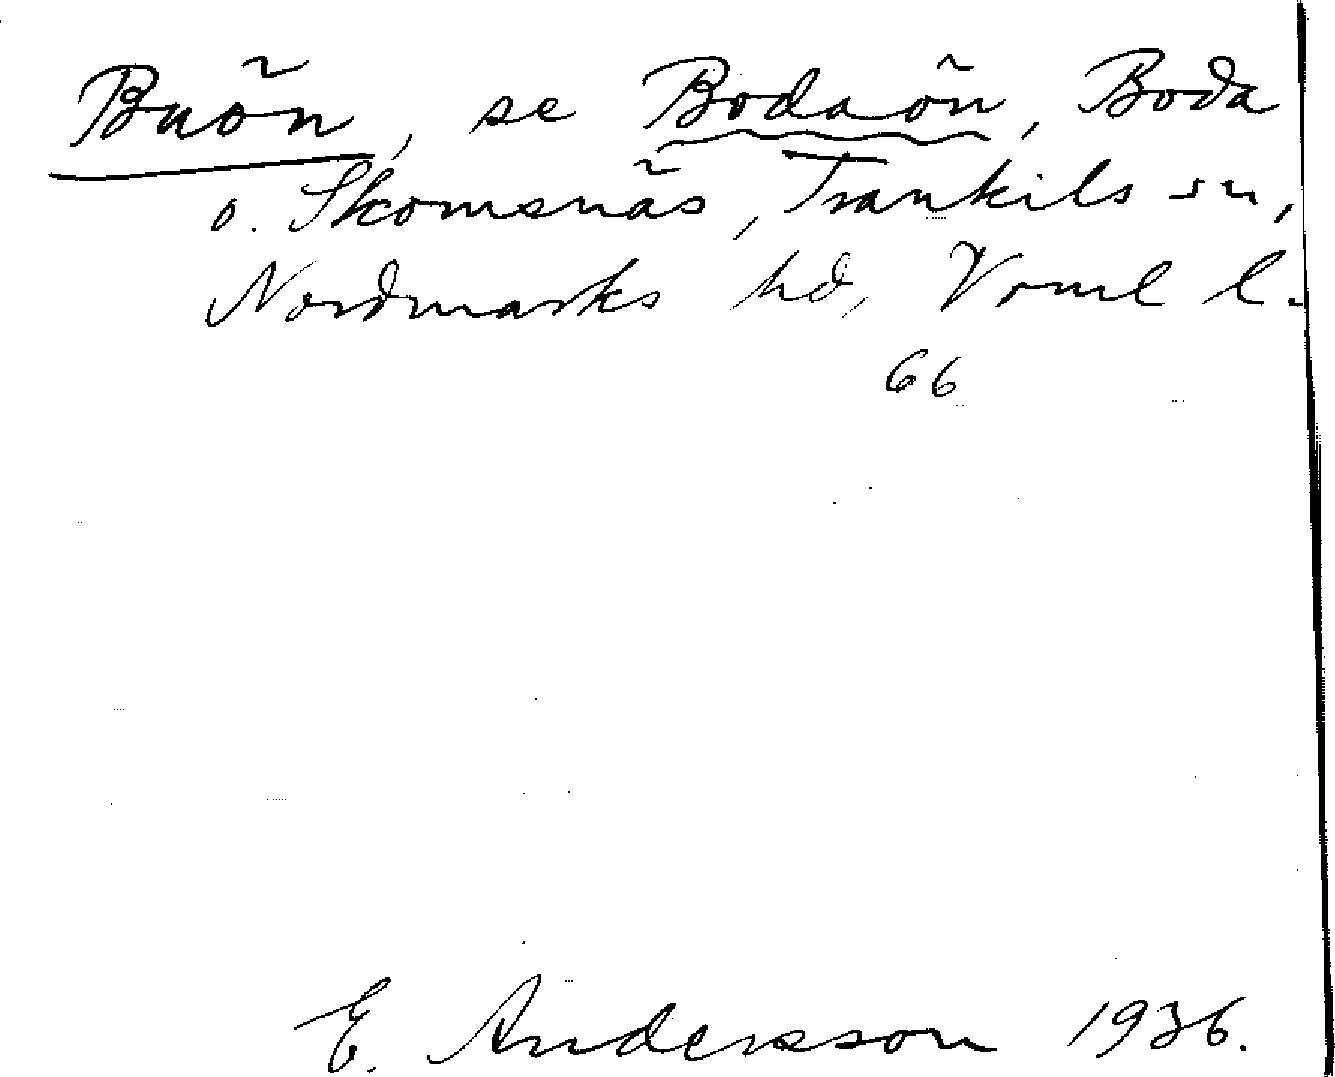 Buön, se Bodaön, Boda
o. Skomsnäs, Trankils sn,
Nordmarks hd, Vrml l.
66
E. Andersson 1936.